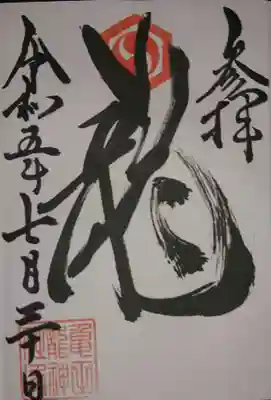 参拝
龍
令和五年七月三十日
亀山
龍神